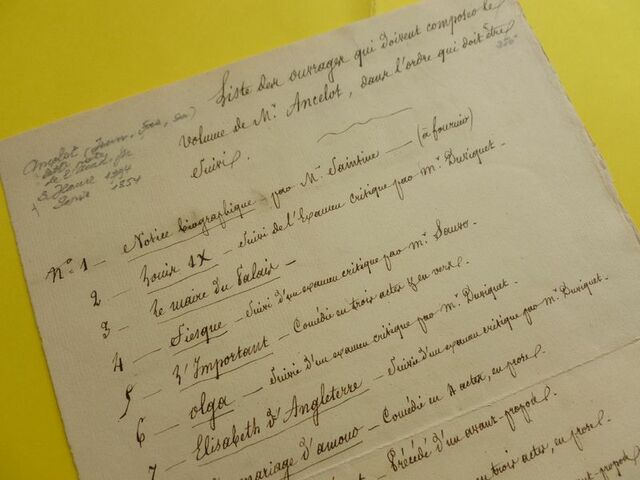 Liste des ouvrages qui doivent composer le
volume de Mr. Ancelot, dans l'ordre qui doit être
suivi.
Ancelot (
de l'Acad. fr.
Havre 1794
1854
No. 1 — Notice biographique — par Mr. Saintine — (à fournir)
2 — Louis IX — Suivi de l'Examen critique par Mr. Duviquet.
3 — Le maire du Palais —
4 — Fiesque — Suivi d'un examen critique par Mr.
5 — L'Important — Comédie en trois actes & en vers.
6 — Olga — Suivie d'un examen critique par Mr. Duviquet.
7 — Elisabeth d'Angleterre — Suivie d'un examen critique par Mr. Duviquet.
mariage d'amour — Comédie en actes, en prose.
Précédé d'un avant-propos.
en trois actes, en prose.